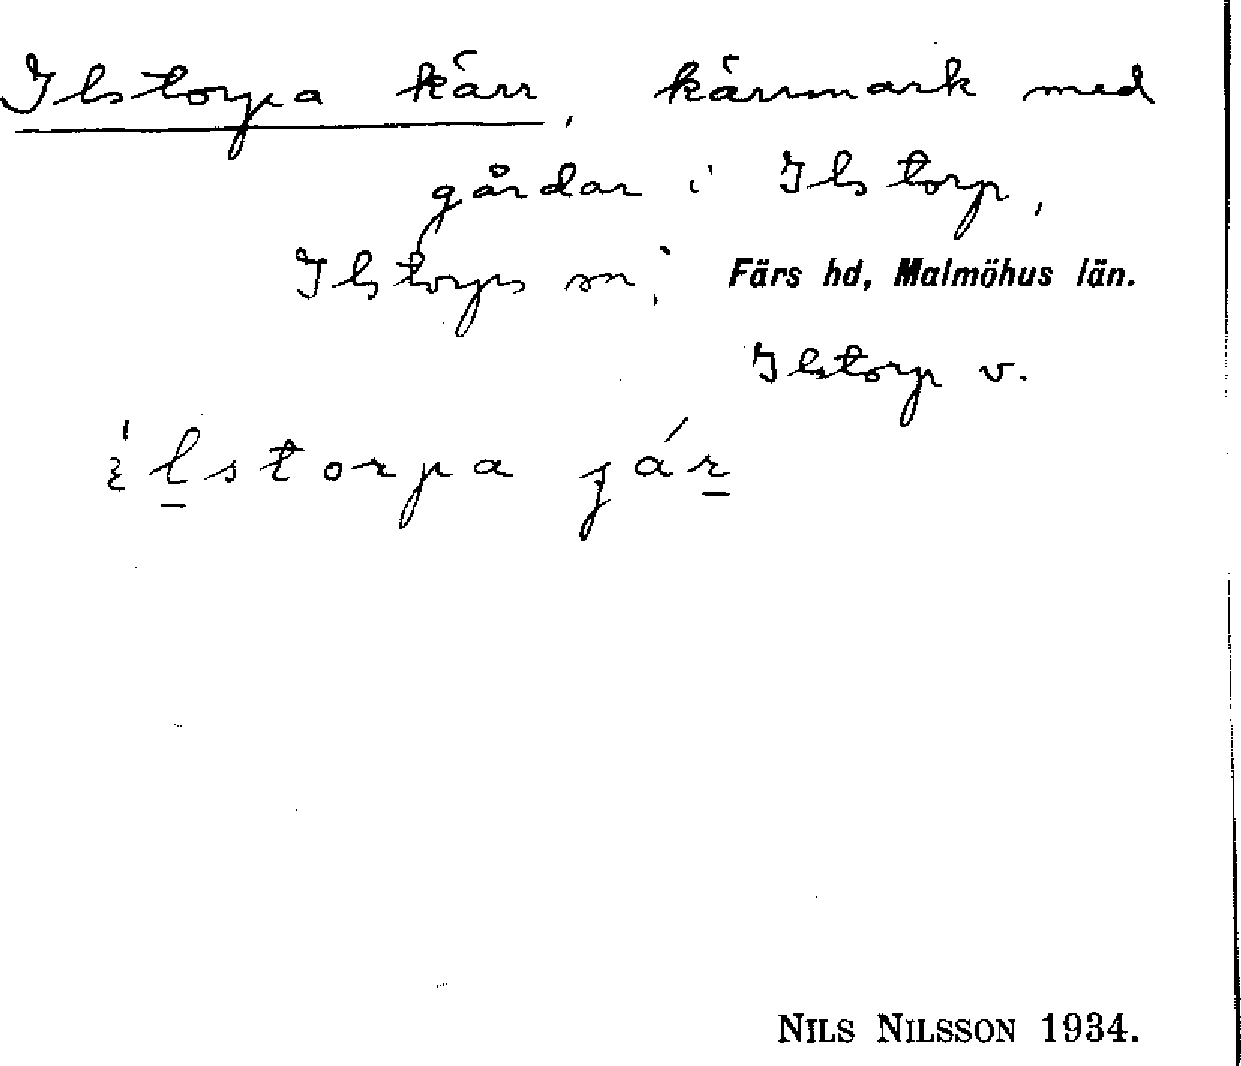 Ilstorpa kärr, kärrmark med
gårdar i Ilstorp,
Ilstorps sn, Färs hd, Malmöhus län.
Ilstorp v.
ilstorpa
NILS NILSSON 1934.